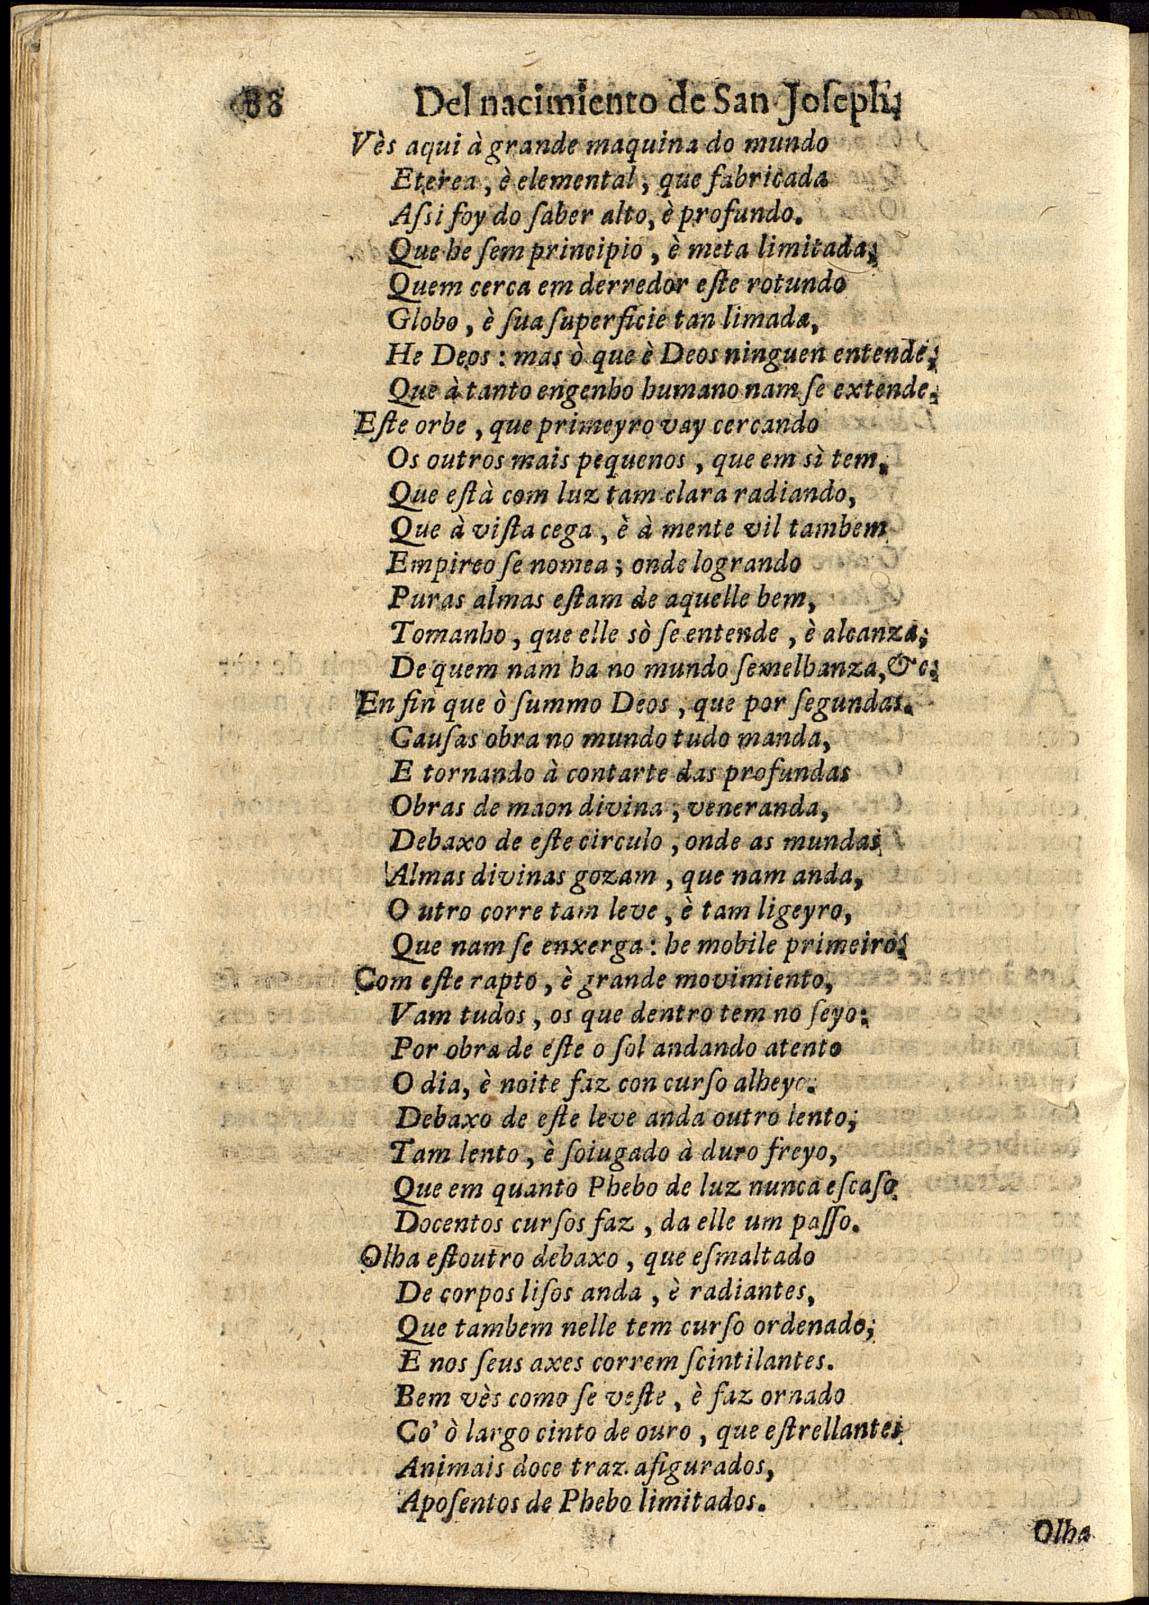 88 Del nacimiento de San Joſeph,
Vès aqui à grande maquina do mundo
Eterea, è elemental, que fabricada
Aſsi foy do ſaber alto, è profundo.
Que he ſem principio, è meta limitada;
Quem cerca em derredor eſte rotundo
Globo, è ſua ſuperficie tan limada,
He Deos: mas ò que è Deos ninguen entende;
Que à tanto engenho humano nam ſe extende.
Eſte orbe, que primeyro vay cercando
Os outros mais pequenos, que em sì tem.
Que eſtà com luz tam clara radiando,
Que à viſta cega, è à mente vil tambem
Empireo ſe nomea; onde logrando
Puras almas eſtam de aquelle bem,
Tomanho, que elle sò ſe entende, è alcanza;
De quem nam ha no mundo ſemelhanza, &c.
En fin que ò ſummo Deos, que por ſegundas.
Cauſas obra no mundo tudo manda,
E tornando à contarte das profundas
Obras de maon divina; veneranda,
Debaxo de eſte circulo, onde as mundas
Almas divinas gozam, que nam anda,
O utro corre tam leve, è tam ligeyro,
Que nam ſe enxerga: he mobile primeiro.
Com eſte rapto, è grande movimiento,
Vam tudos, os que dentro tem no ſeyo:
Por obra de eſte o ſol andando atento
O dia, è noite faz con curſo alheyo.
Debaxo de eſte leve anda outro lento;
Tam lento, è ſoiugado à duro freyo,
Que em quanto Phebo de luz nunca eſcaſo
Docentos curſos faz, da elle um paſſo.
Olha eſtoutro debaxo, que eſmaltado
De corpos liſos anda, è radiantes,
Que tambem nelle tem curſo ordenado;
E nos ſeus axes correm ſcintilantes.
Bem vès como ſe veſte, è faz ornado
Co' ò largo cinto de ouro, que eſtrellantes
Animais doce traz aſigurados,
Apoſentos de Phebo limitados.
Olha